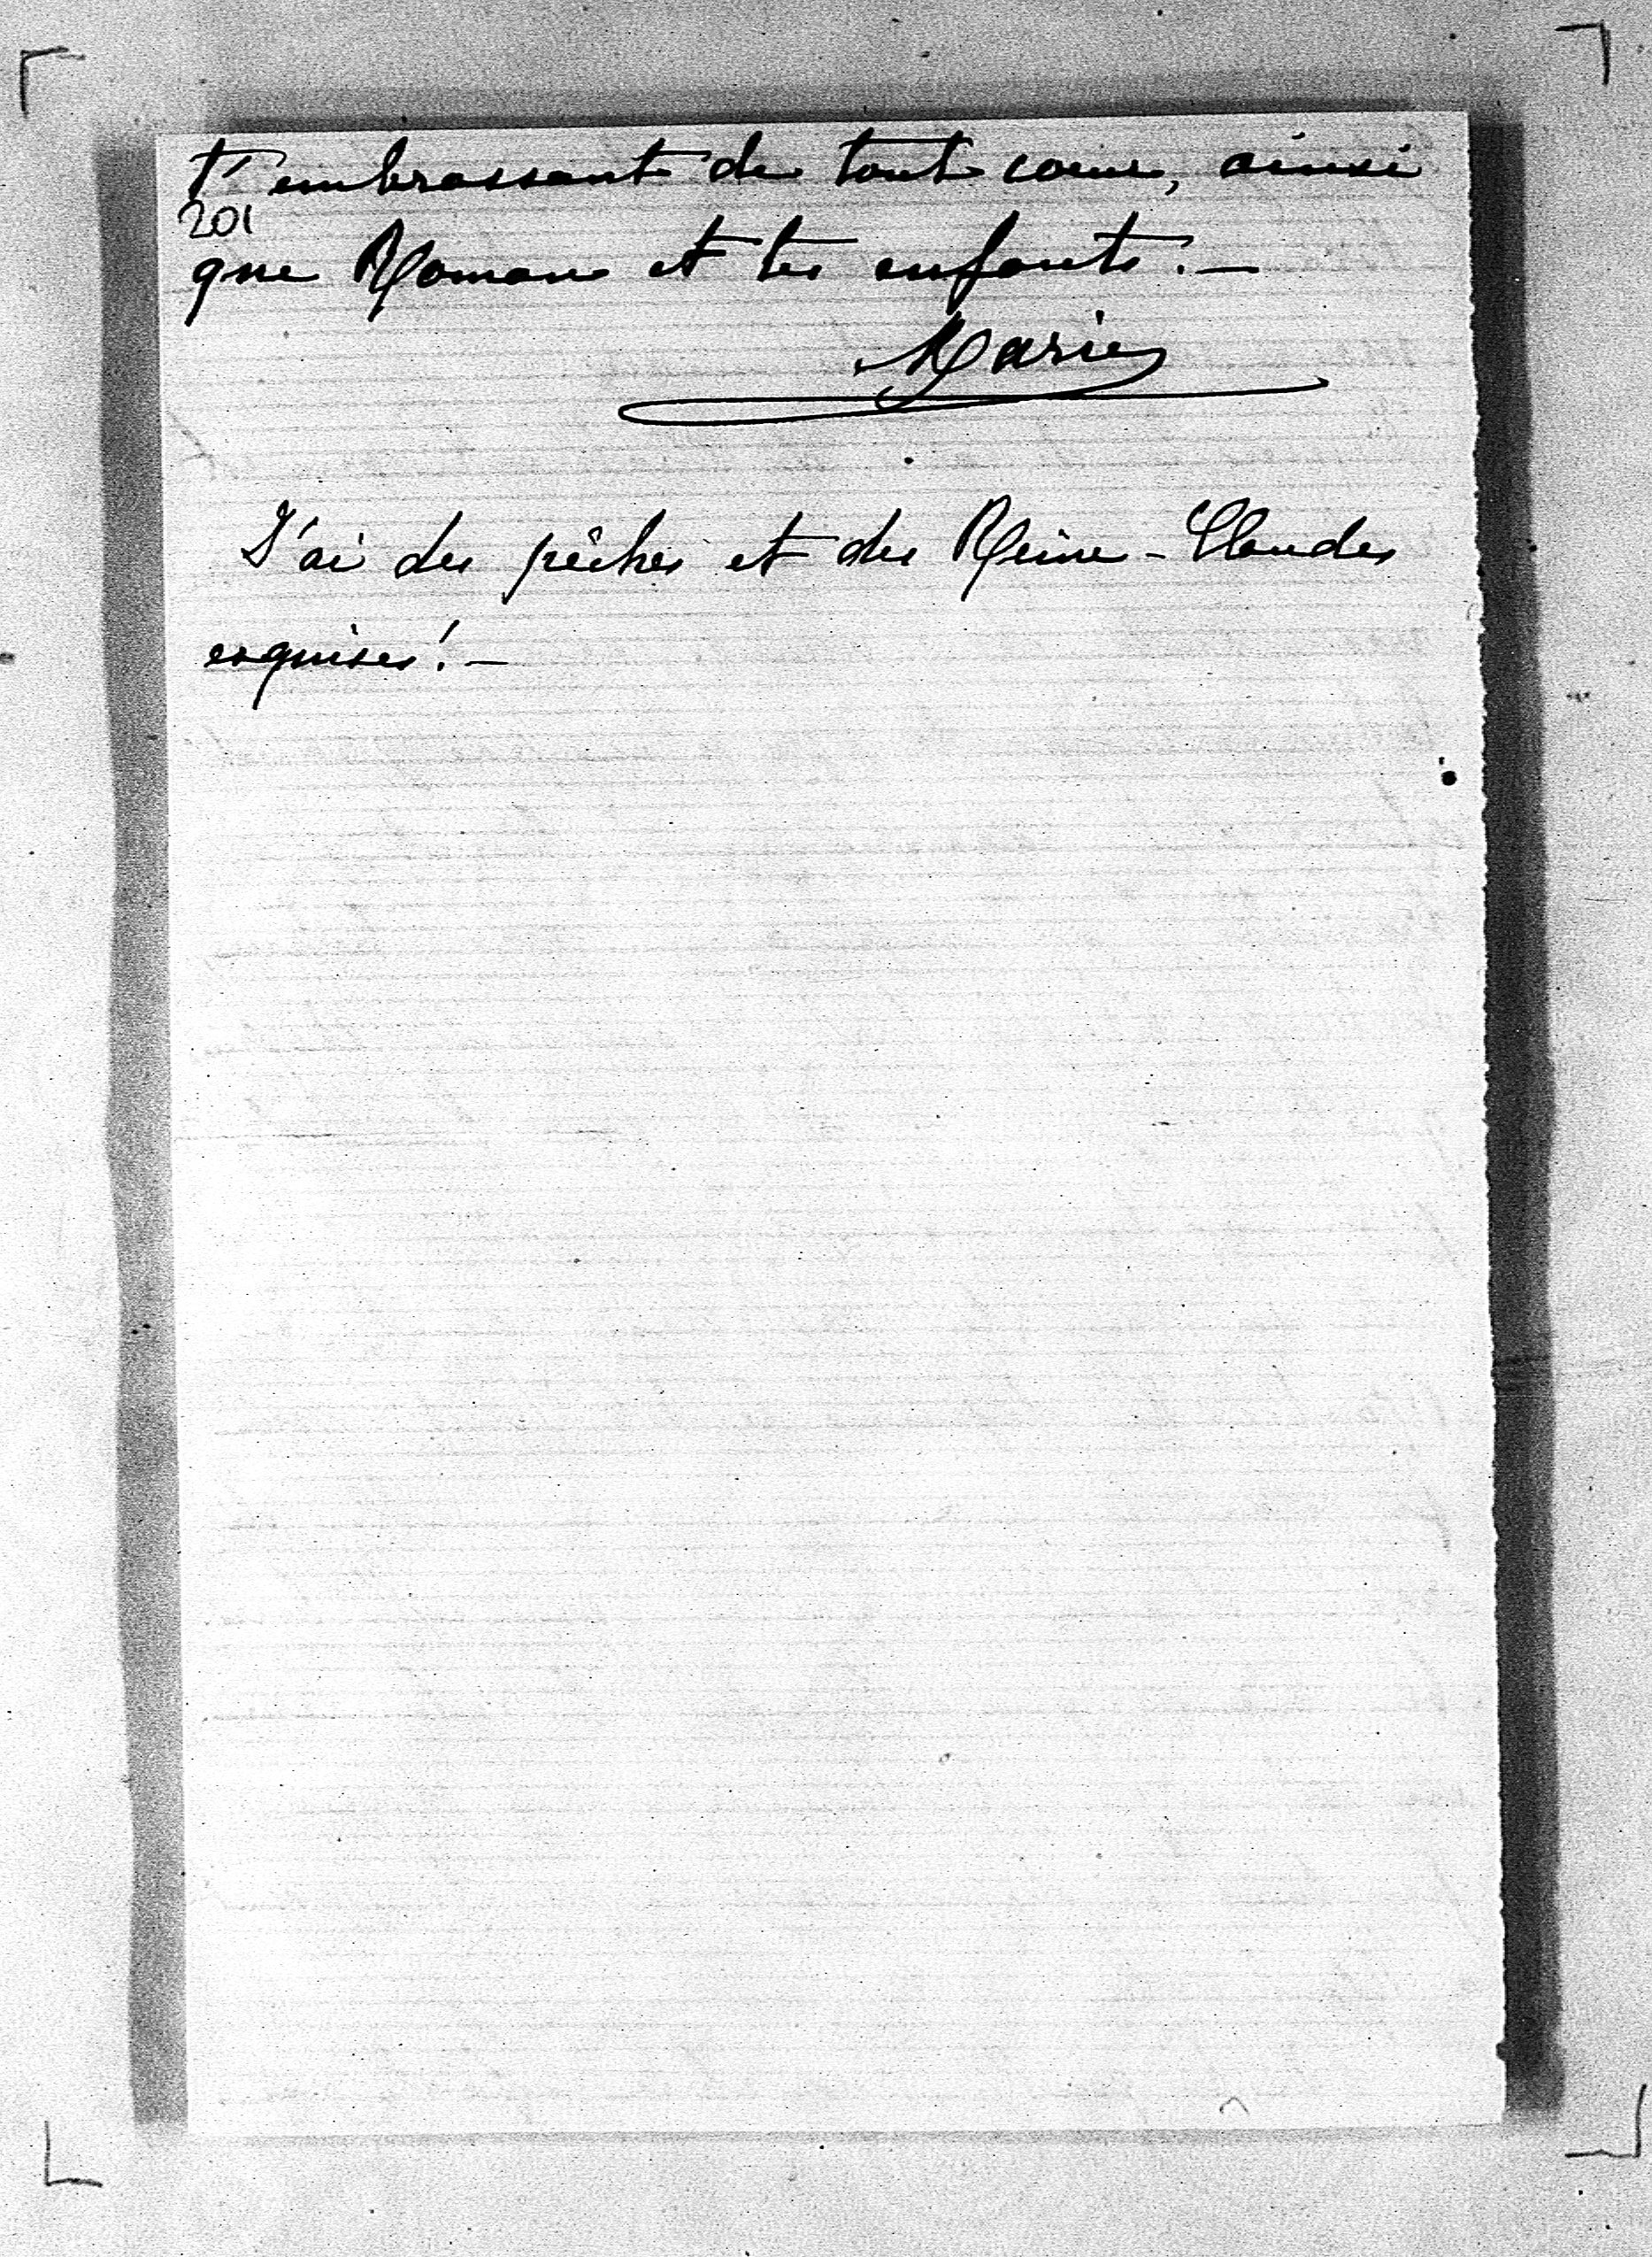 t'embrassant de tout coeur, ainsi
201
que Romane et tes enfants. —
Marie
J'ai des pêches et des Reine-Claudes
exquises! —